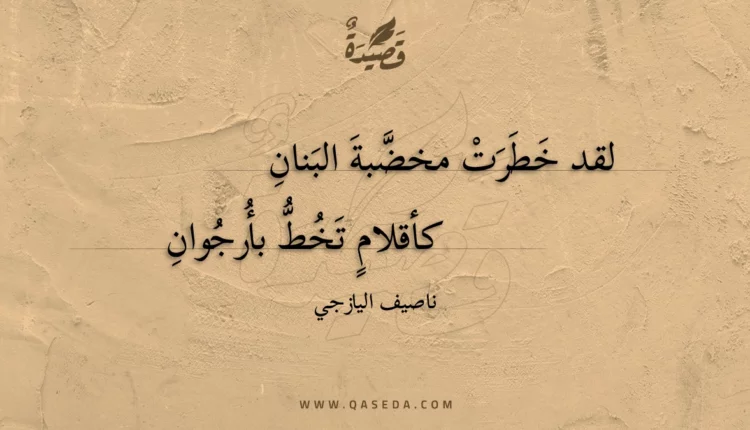 قَصِيدَةٌ
لقد خَطَرَتْ مخضَّبةَ البَنانِ
كأقلامٍ تَخُطُّ بأُرجُوانِ
ناصيف اليازجي
WWW.QASEDA.COM